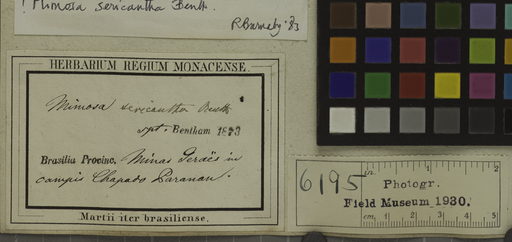 ! Mimosa sericantha Benth.
R Barneby '83
HERBARIUM REGIUM MONACENSE.
Mimosa sericantha Benth
Bentham
Brasilia Provinc. Minas Geraës in
campis Chapado Paranan.
Martii iter brasiliense.
6195
in. 1 2
Photogr.
Field Museum 1930.
cm. 1 2 3 4 5